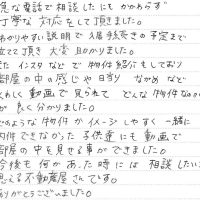 急な電話で相談したにもかかわらず
丁寧な対応をして頂きました。
わかりやすい説明で 今後の予定まで
立てて頂き 大変 助かりました。
また インスタなどで 物件紹介もしており
部屋の中の感じや 日当り ながめなど
くわしく 動画で 見られて どんな物件なのか
が 良く分かりました。
どのような物件か イメージしやすく 一緒に
内件できなかった 子供達にも 動画で
部屋の中を見せる事ができました。
今後も 何かあった時には 相談したいと
思える不動産屋さんです。
ありがとうございました。